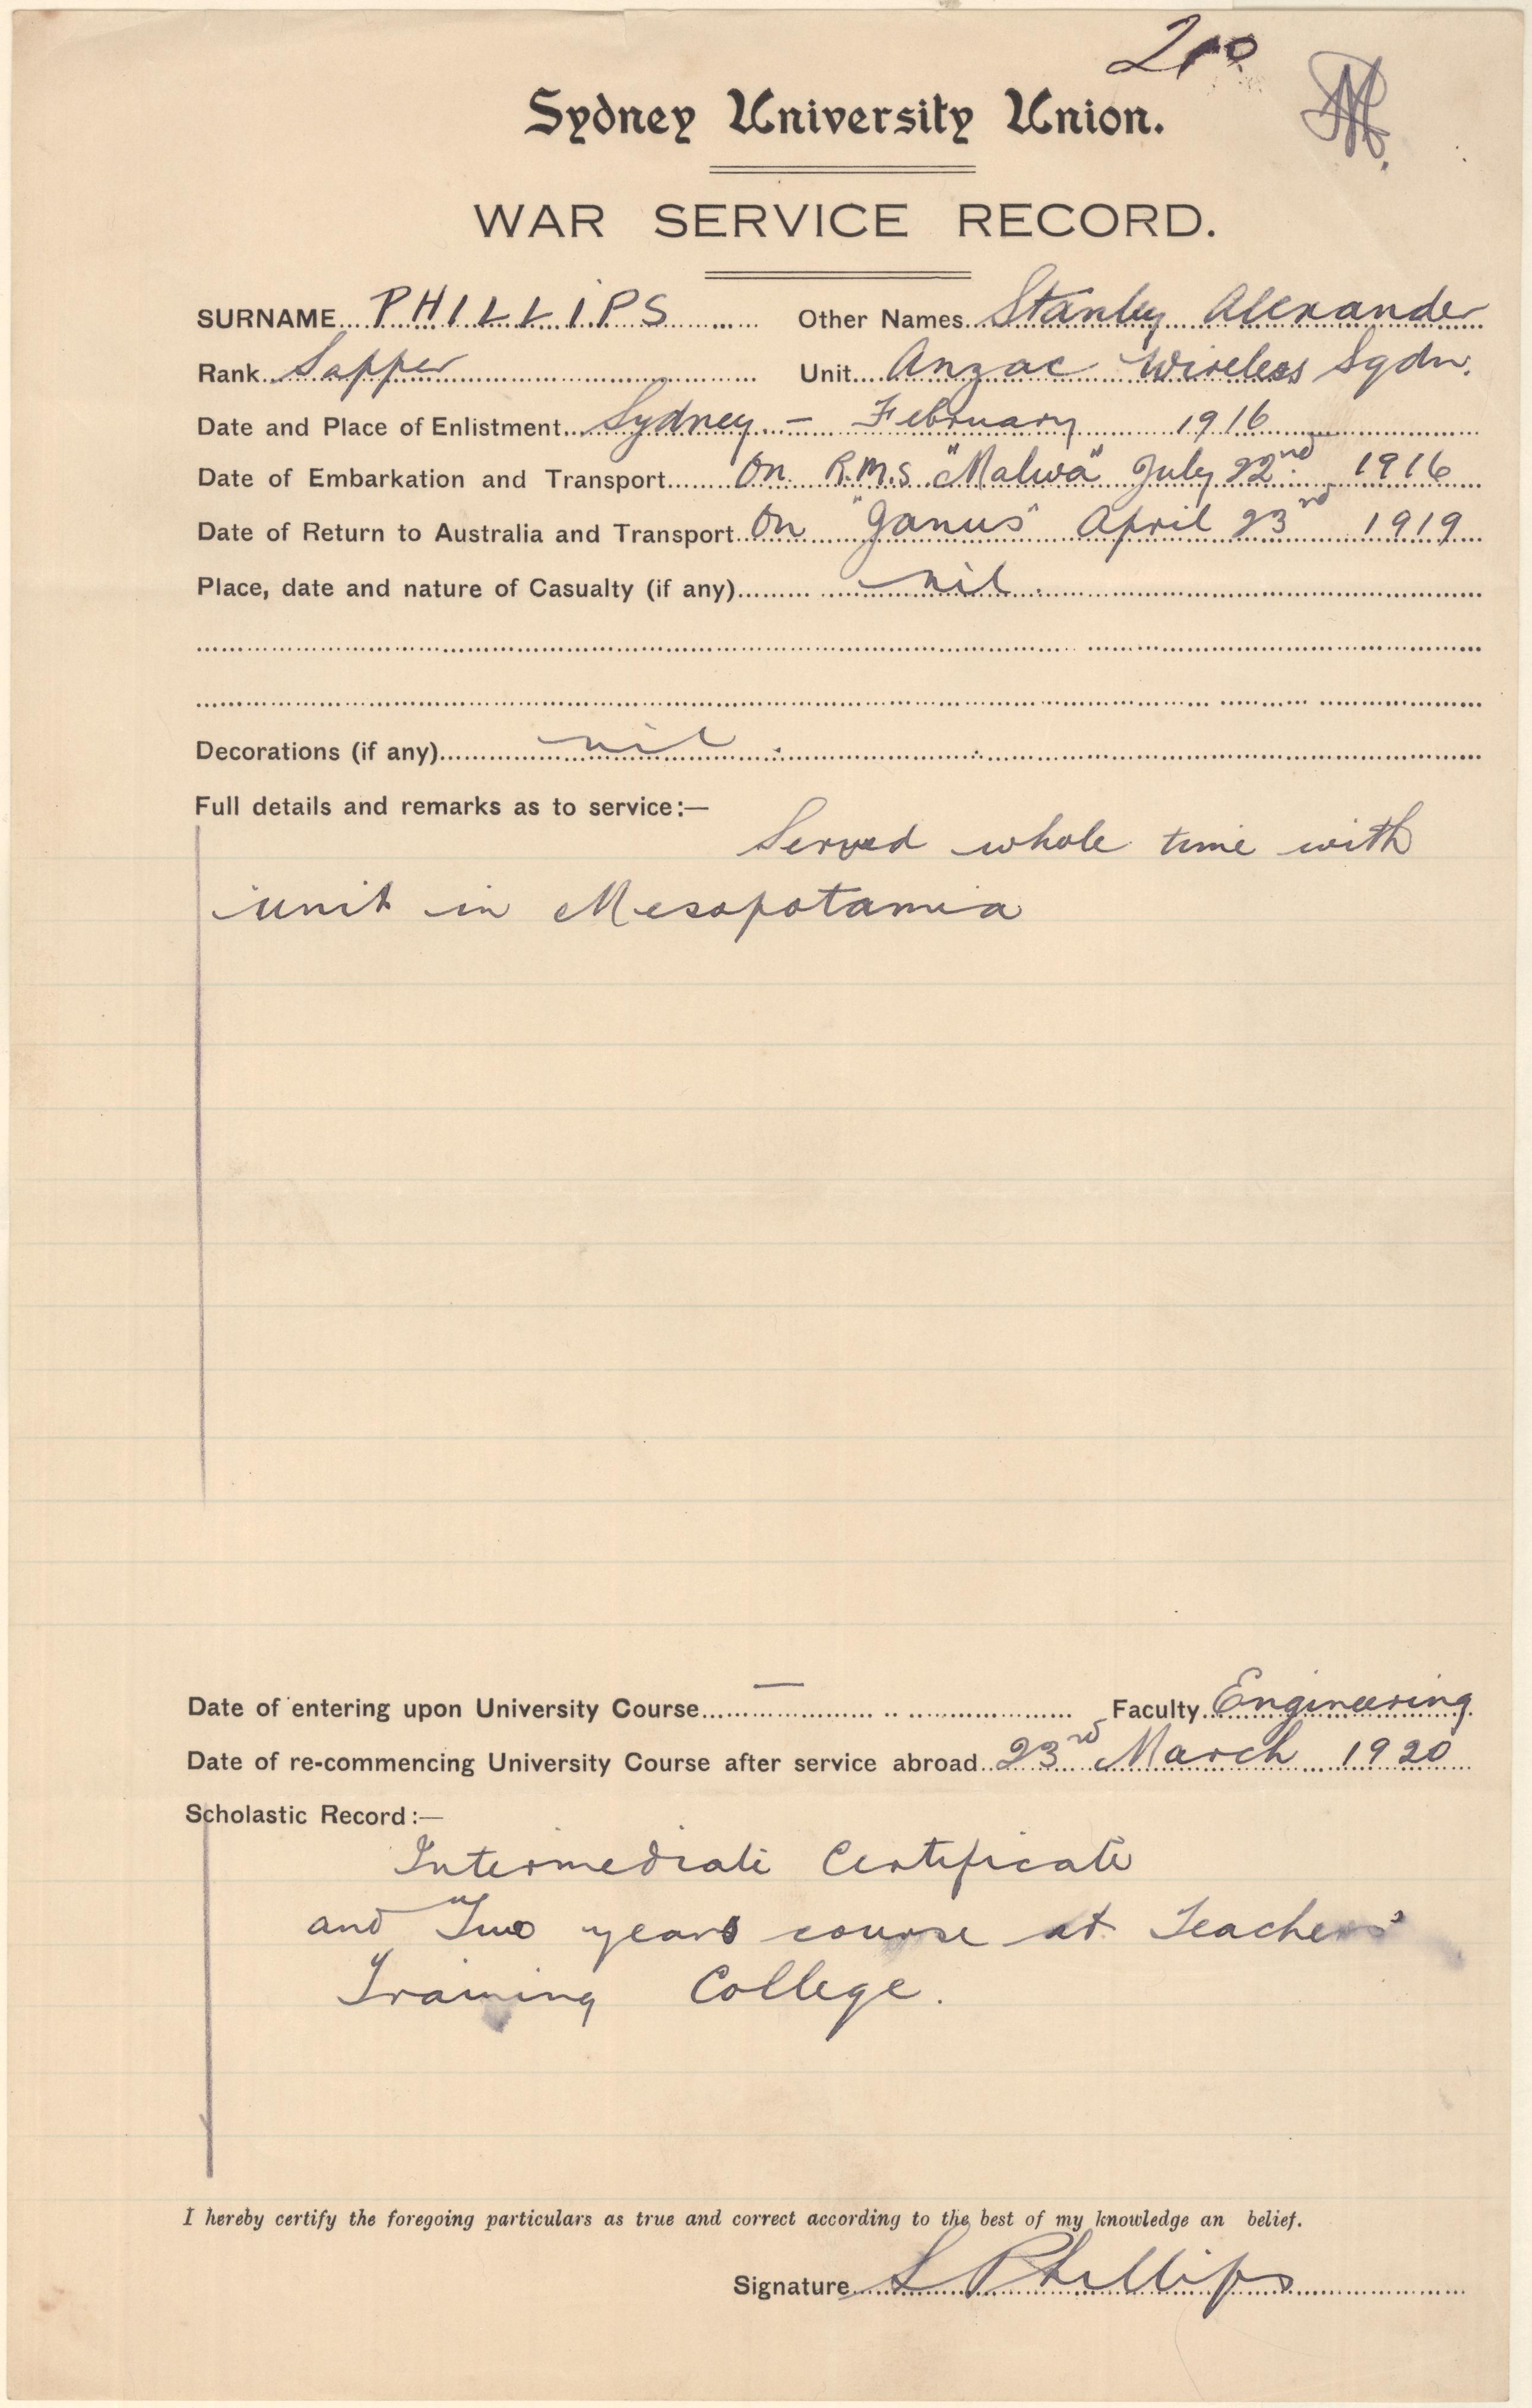 Sydney University Union.
WAR SERVICE RECORD.
SURNAME PHILLIPS Other Names Stanley Alexander
Rank Sapper Unit Anzac Wireless Sqdn.
Date and Place of Enlistment Sydney - February 1916
Date of Embarkation and Transport On R.M.S. "Malwa" July 22nd 1916
Date of Return to Australia and Transport On "Janus" April 23rd 1919
Place, date and nature of Casualty (if any) nil.
Decorations (if any) nil
Full details and remarks as to service:—
Served whole time with
unit in Mesopotamia
Date of entering upon University Course — Faculty Engineering
Date of re-commencing University Course after service abroad 23rd March 1920
Scholastic Record:—
Intermediate Certificate
and Two years course at Teachers'
Training College.
I hereby certify the foregoing particulars as true and correct according to the best of my knowledge an belief.
Signature S Phillips